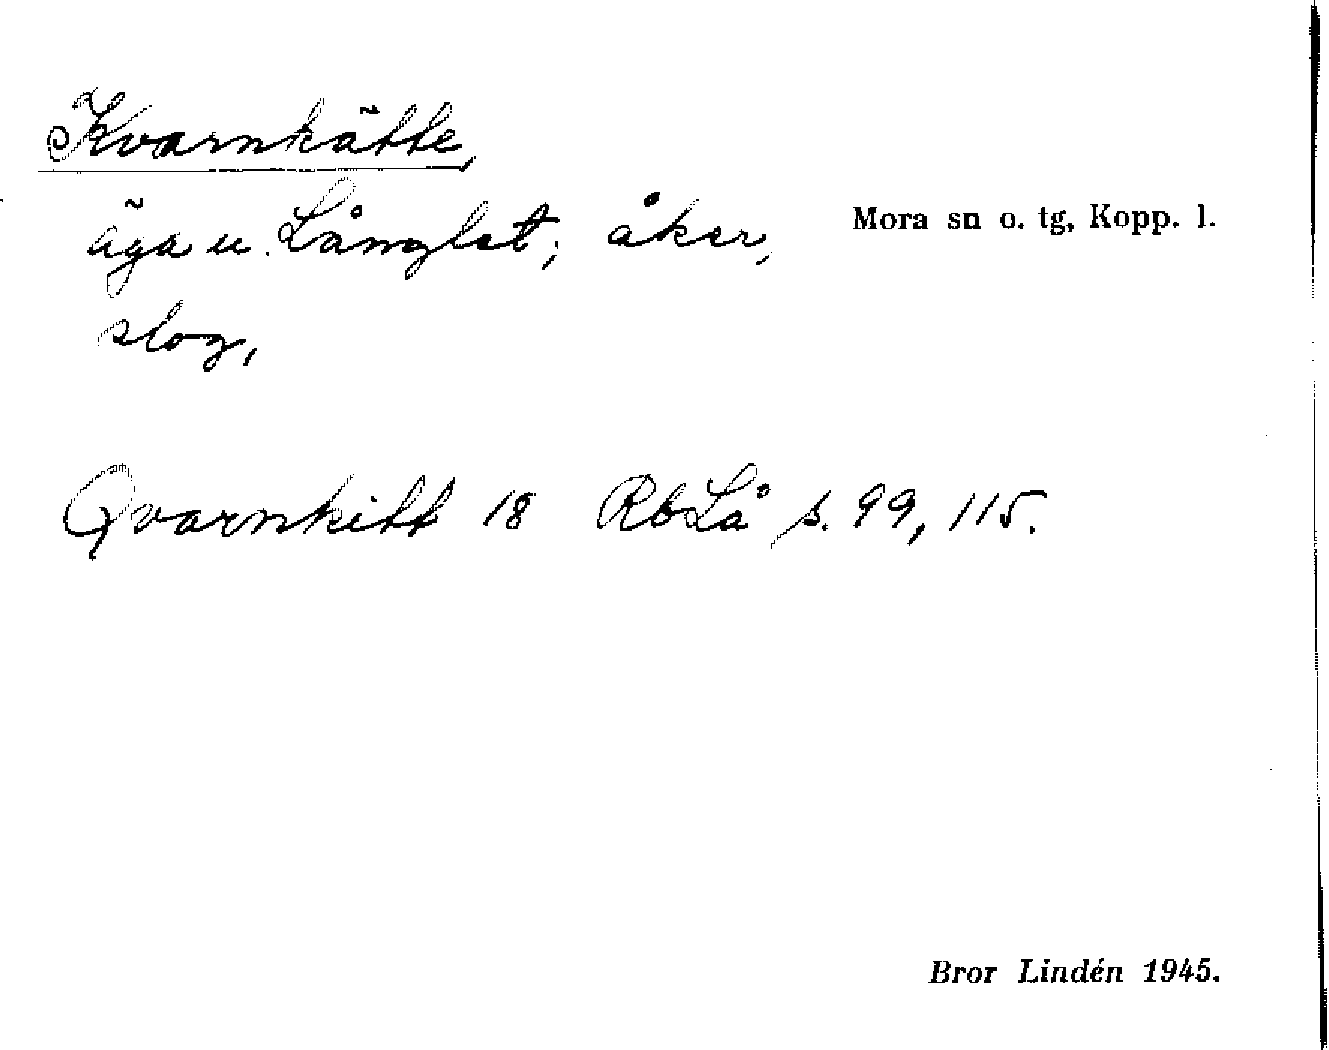 Kvarnkätte,
äga u. Långlet; åker,
Mora sn o. tg, Kopp. l.
slog,
Qvarnkitt 18 RbLå s. 99, 115.
Bror Lindén 1945.